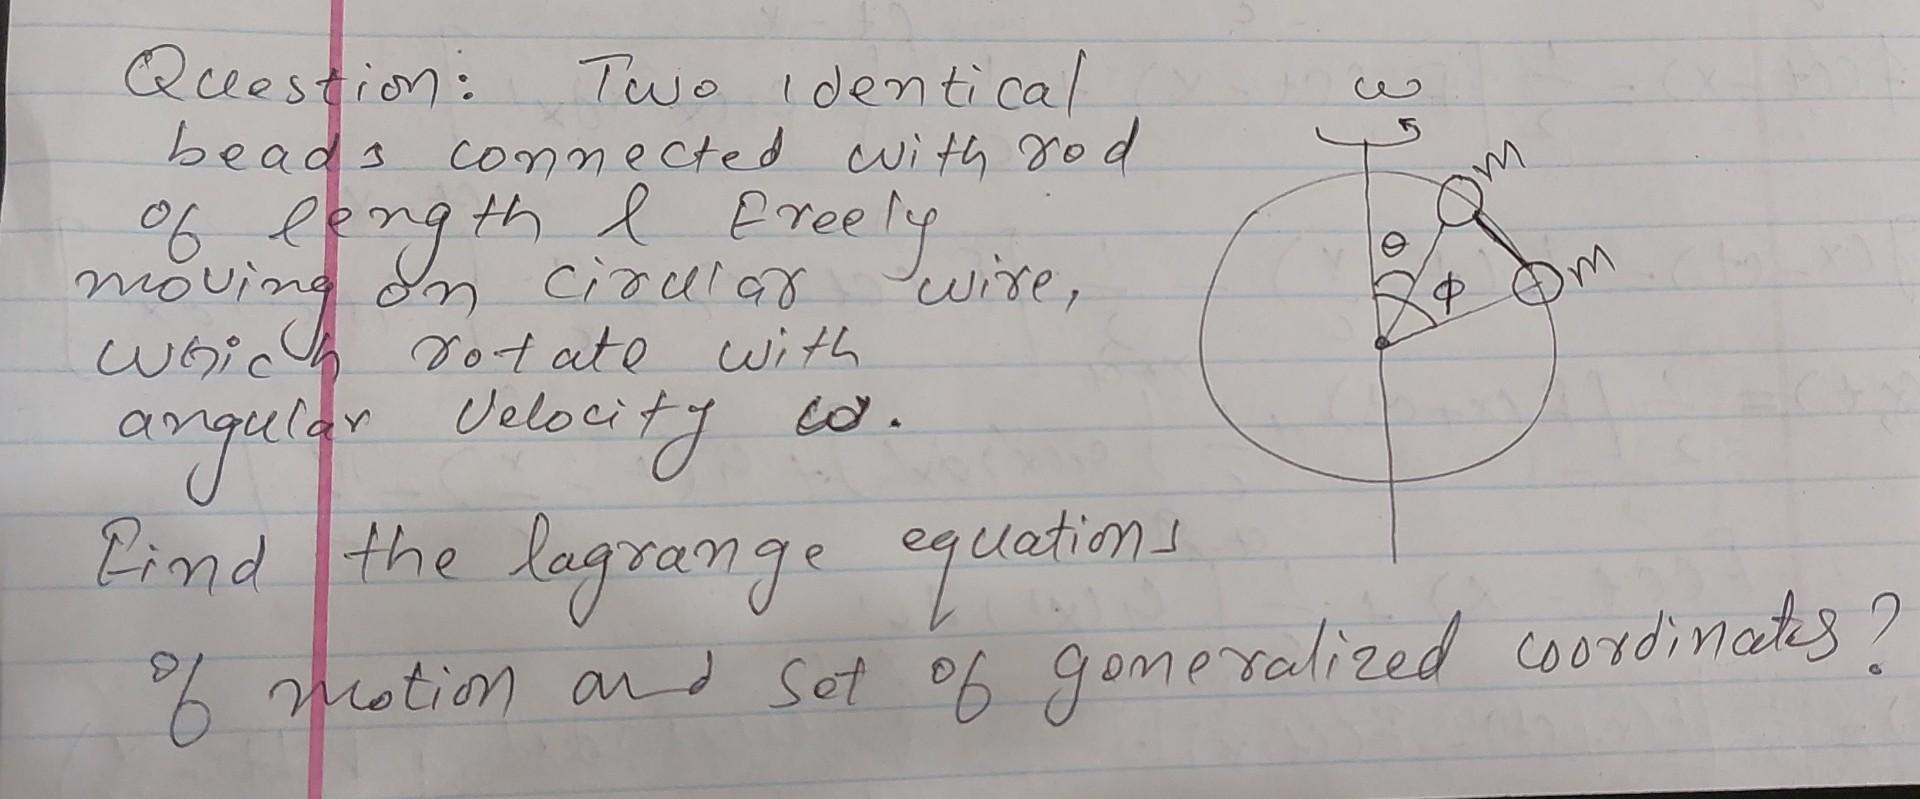 Question: Two identical
beads connected with rod
of length l freely
moving on circular wire,
which rotate with
angular velocity ω.
Find the lagrange equations
of motion and set of generalized coordinates?
ω
m
m
θ
ϕ